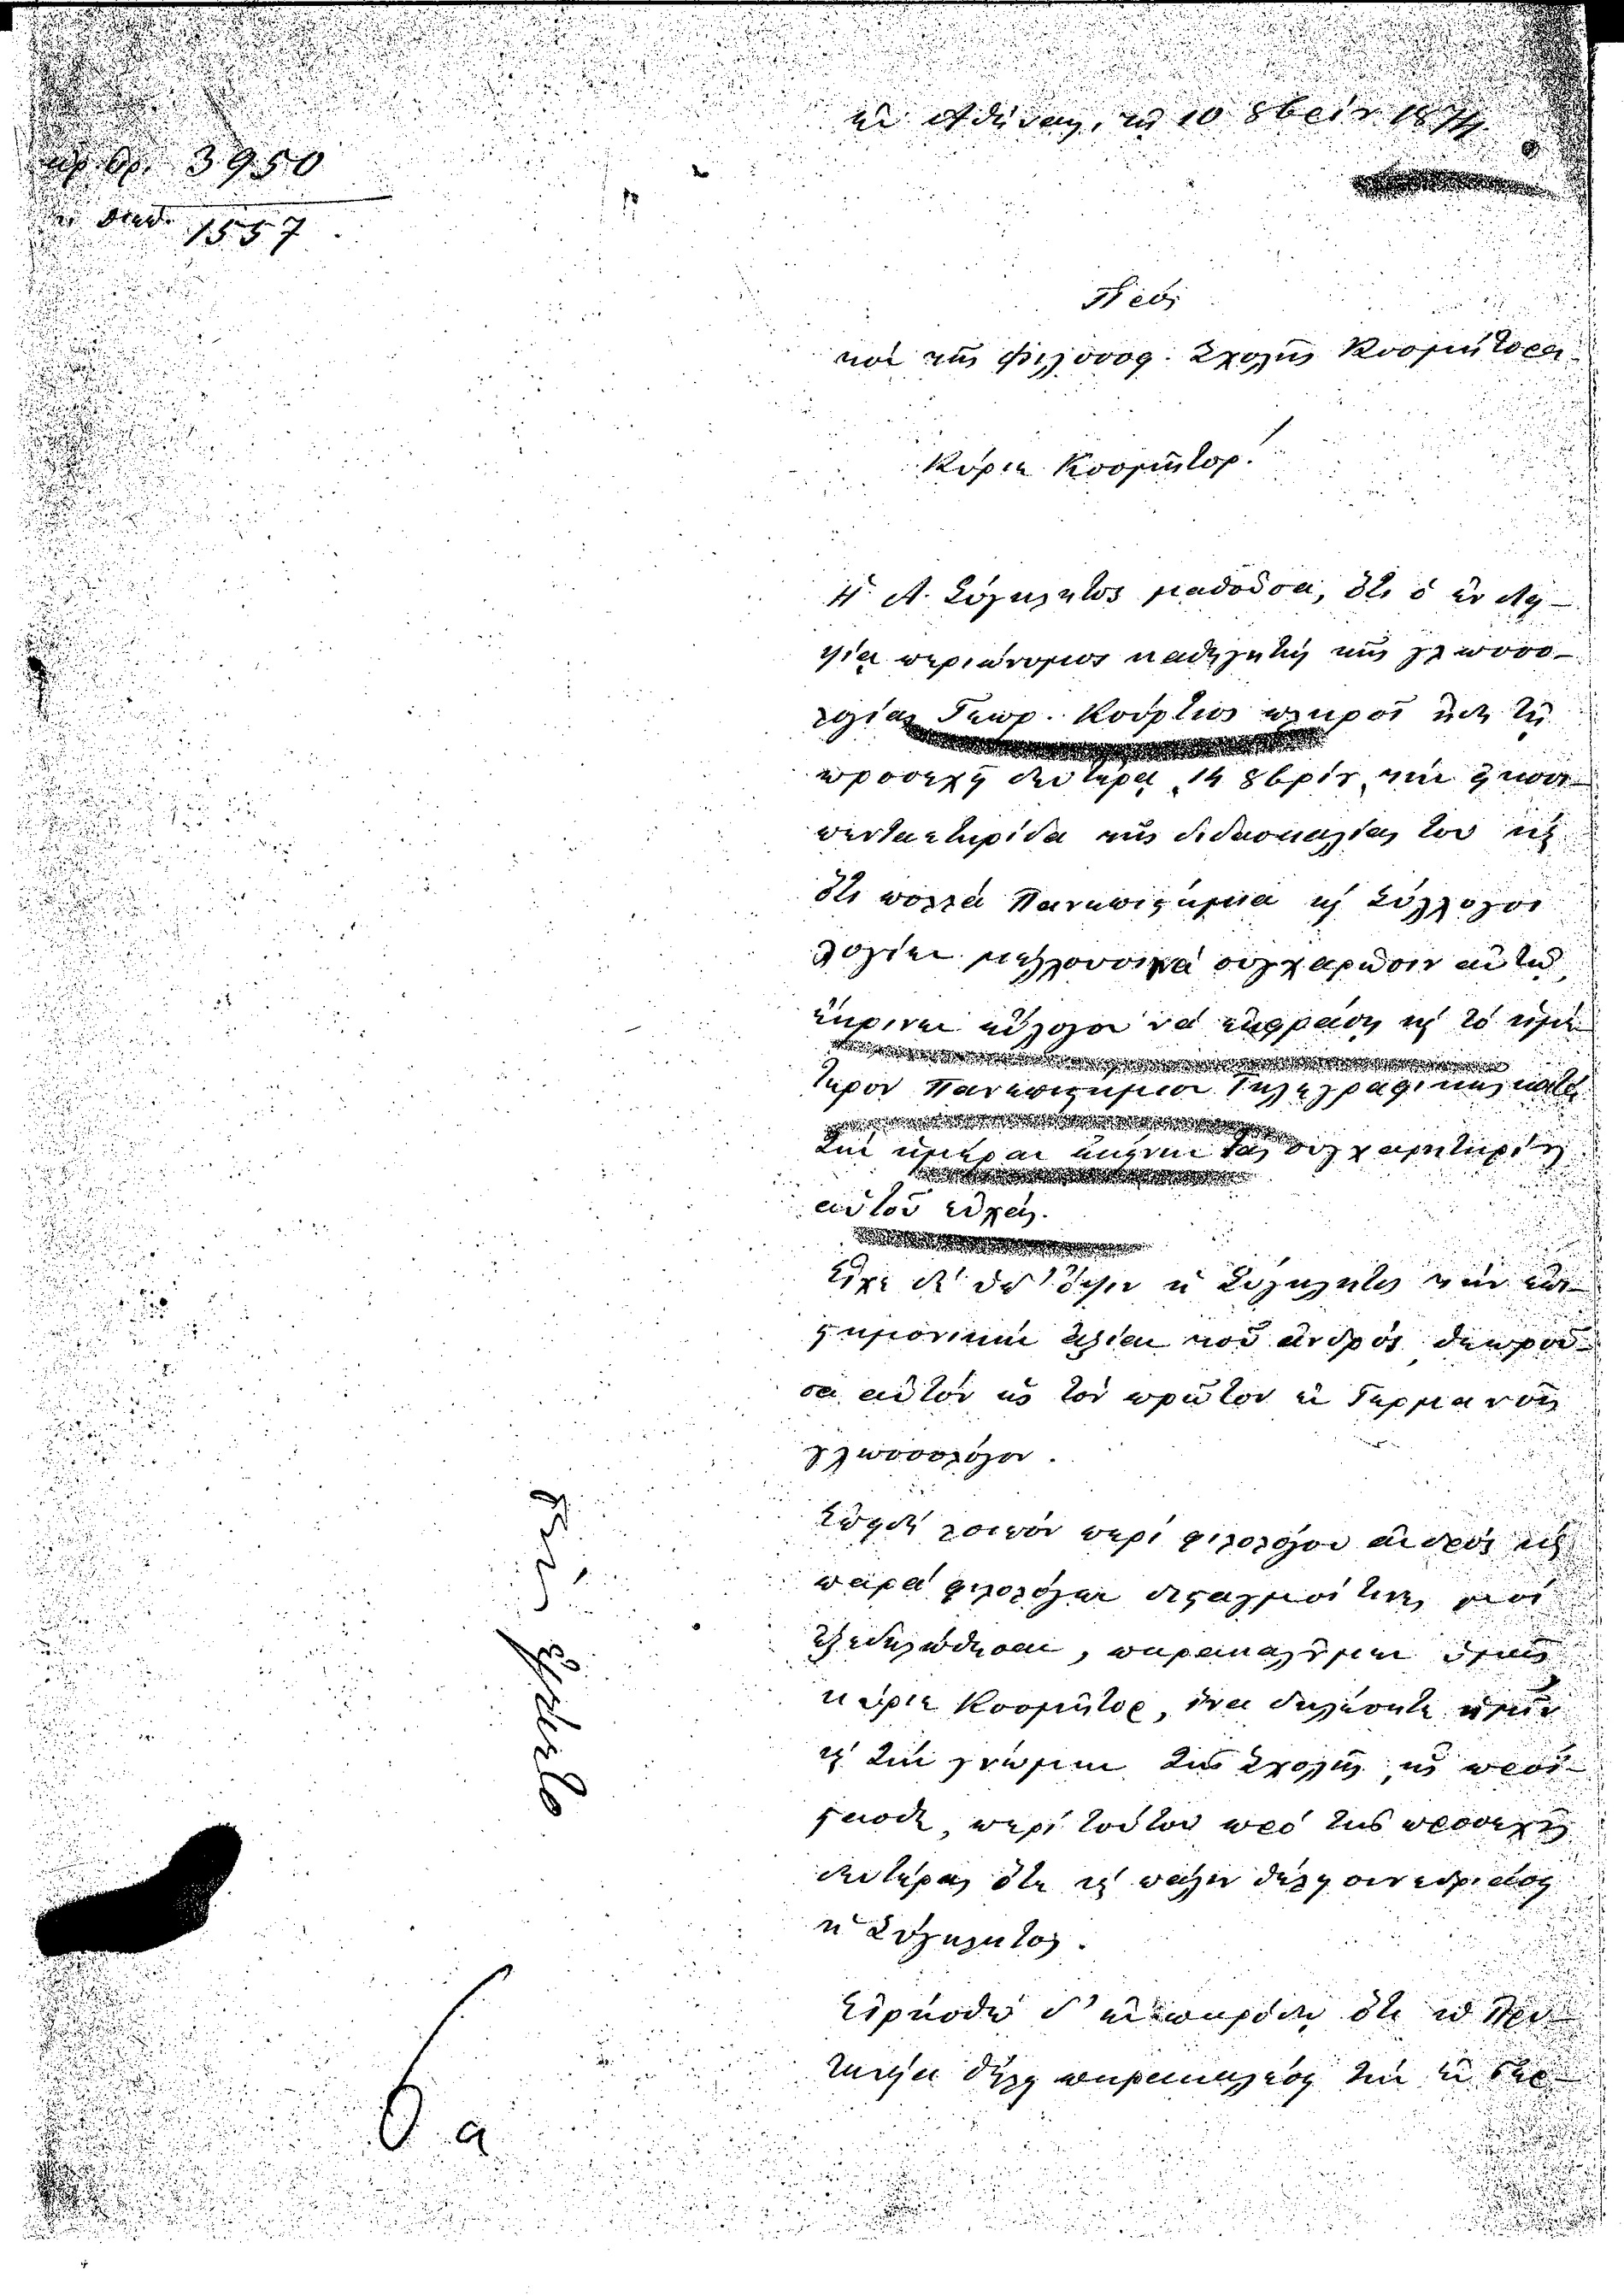 ἐν Ἀθήναις, τῇ 10 8βρίου 1874
ἀρ. πρ. 3950
διεκ. 1557
Πρός
τόν τῆς Φιλοσοφ. Σχολῆς Κοσμήτορα
Κύριε Κοσμῆτορ!
Ἡ Α. Σύγκλητος μαθοῦσα, ὅτι ὁ ἐν Λη-
ψίᾳ περιώνυμος καθηγητής τῆς γλωσσο-
λογίας Γεωρ. Κούρτιος πληροῖ τῇ
προσεχεῖ δευτέρᾳ, 14 8βρίου, τήν εἰκοσι-
πενταετηρίδα τῆς διδασκαλίας του καί
ὅτι πολλά Πανεπιστήμια καί Σύλλογοι
λογίων μέλλουσι νά συγχαρῶσιν αὐτῷ,
ἔκρινεν εὔλογον νά ἐκφράσῃ καί τό ἡμέ-
τερον Πανεπιστήμιον τηλεγραφικῶς κατά
τήν ἡμέραν ἐκείνην τάς συγχαρητηρίους
αὐτοῦ εὐχάς.
Εἶχε δ' ὑπ' ὄψιν ἡ Σύγκλητος τήν ἐπι-
στημονικήν ἀξίαν τοῦ ἀνδρός, θεωροῦ-
σα αὐτόν ὡς τόν πρῶτον ἐν Γερμανοῖς
γλωσσολόγον.
Ἐπειδή λοιπόν περί φιλολόγου ἀνδρός καί
παρά φιλολόγων δισταγμοί τινες μοί
ἐξεδηλώθησαν, παρακαλοῦμεν ὑμᾶς,
κύριε Κοσμῆτορ, ἵνα δηλώσητε ἡμῖν
καί τήν γνώμην τῆς Σχολῆς, ἧς προΐ-
στασθε, περί τούτου πρό τῆς προσεχοῦς
δευτέρας ὅτε καί πάλιν θέλει συνεδριάσει
ἡ Σύγκλητος.
Εἰρήσθω δ' ἐν παρόδῳ ὅτι ἡ Πρυ-
τανεία θέλει παρακαλέσει τήν ἐν Γερ-
ἐγένετο
6 a